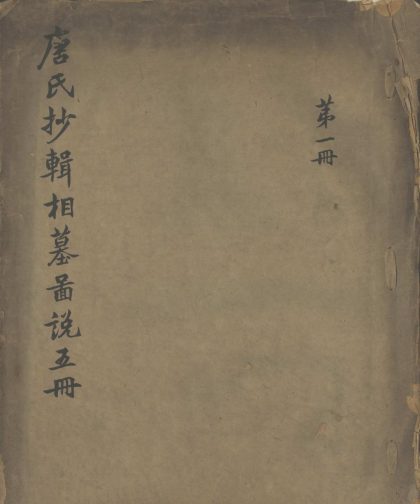 第一冊
唐氏抄輯相墓啚説五冊